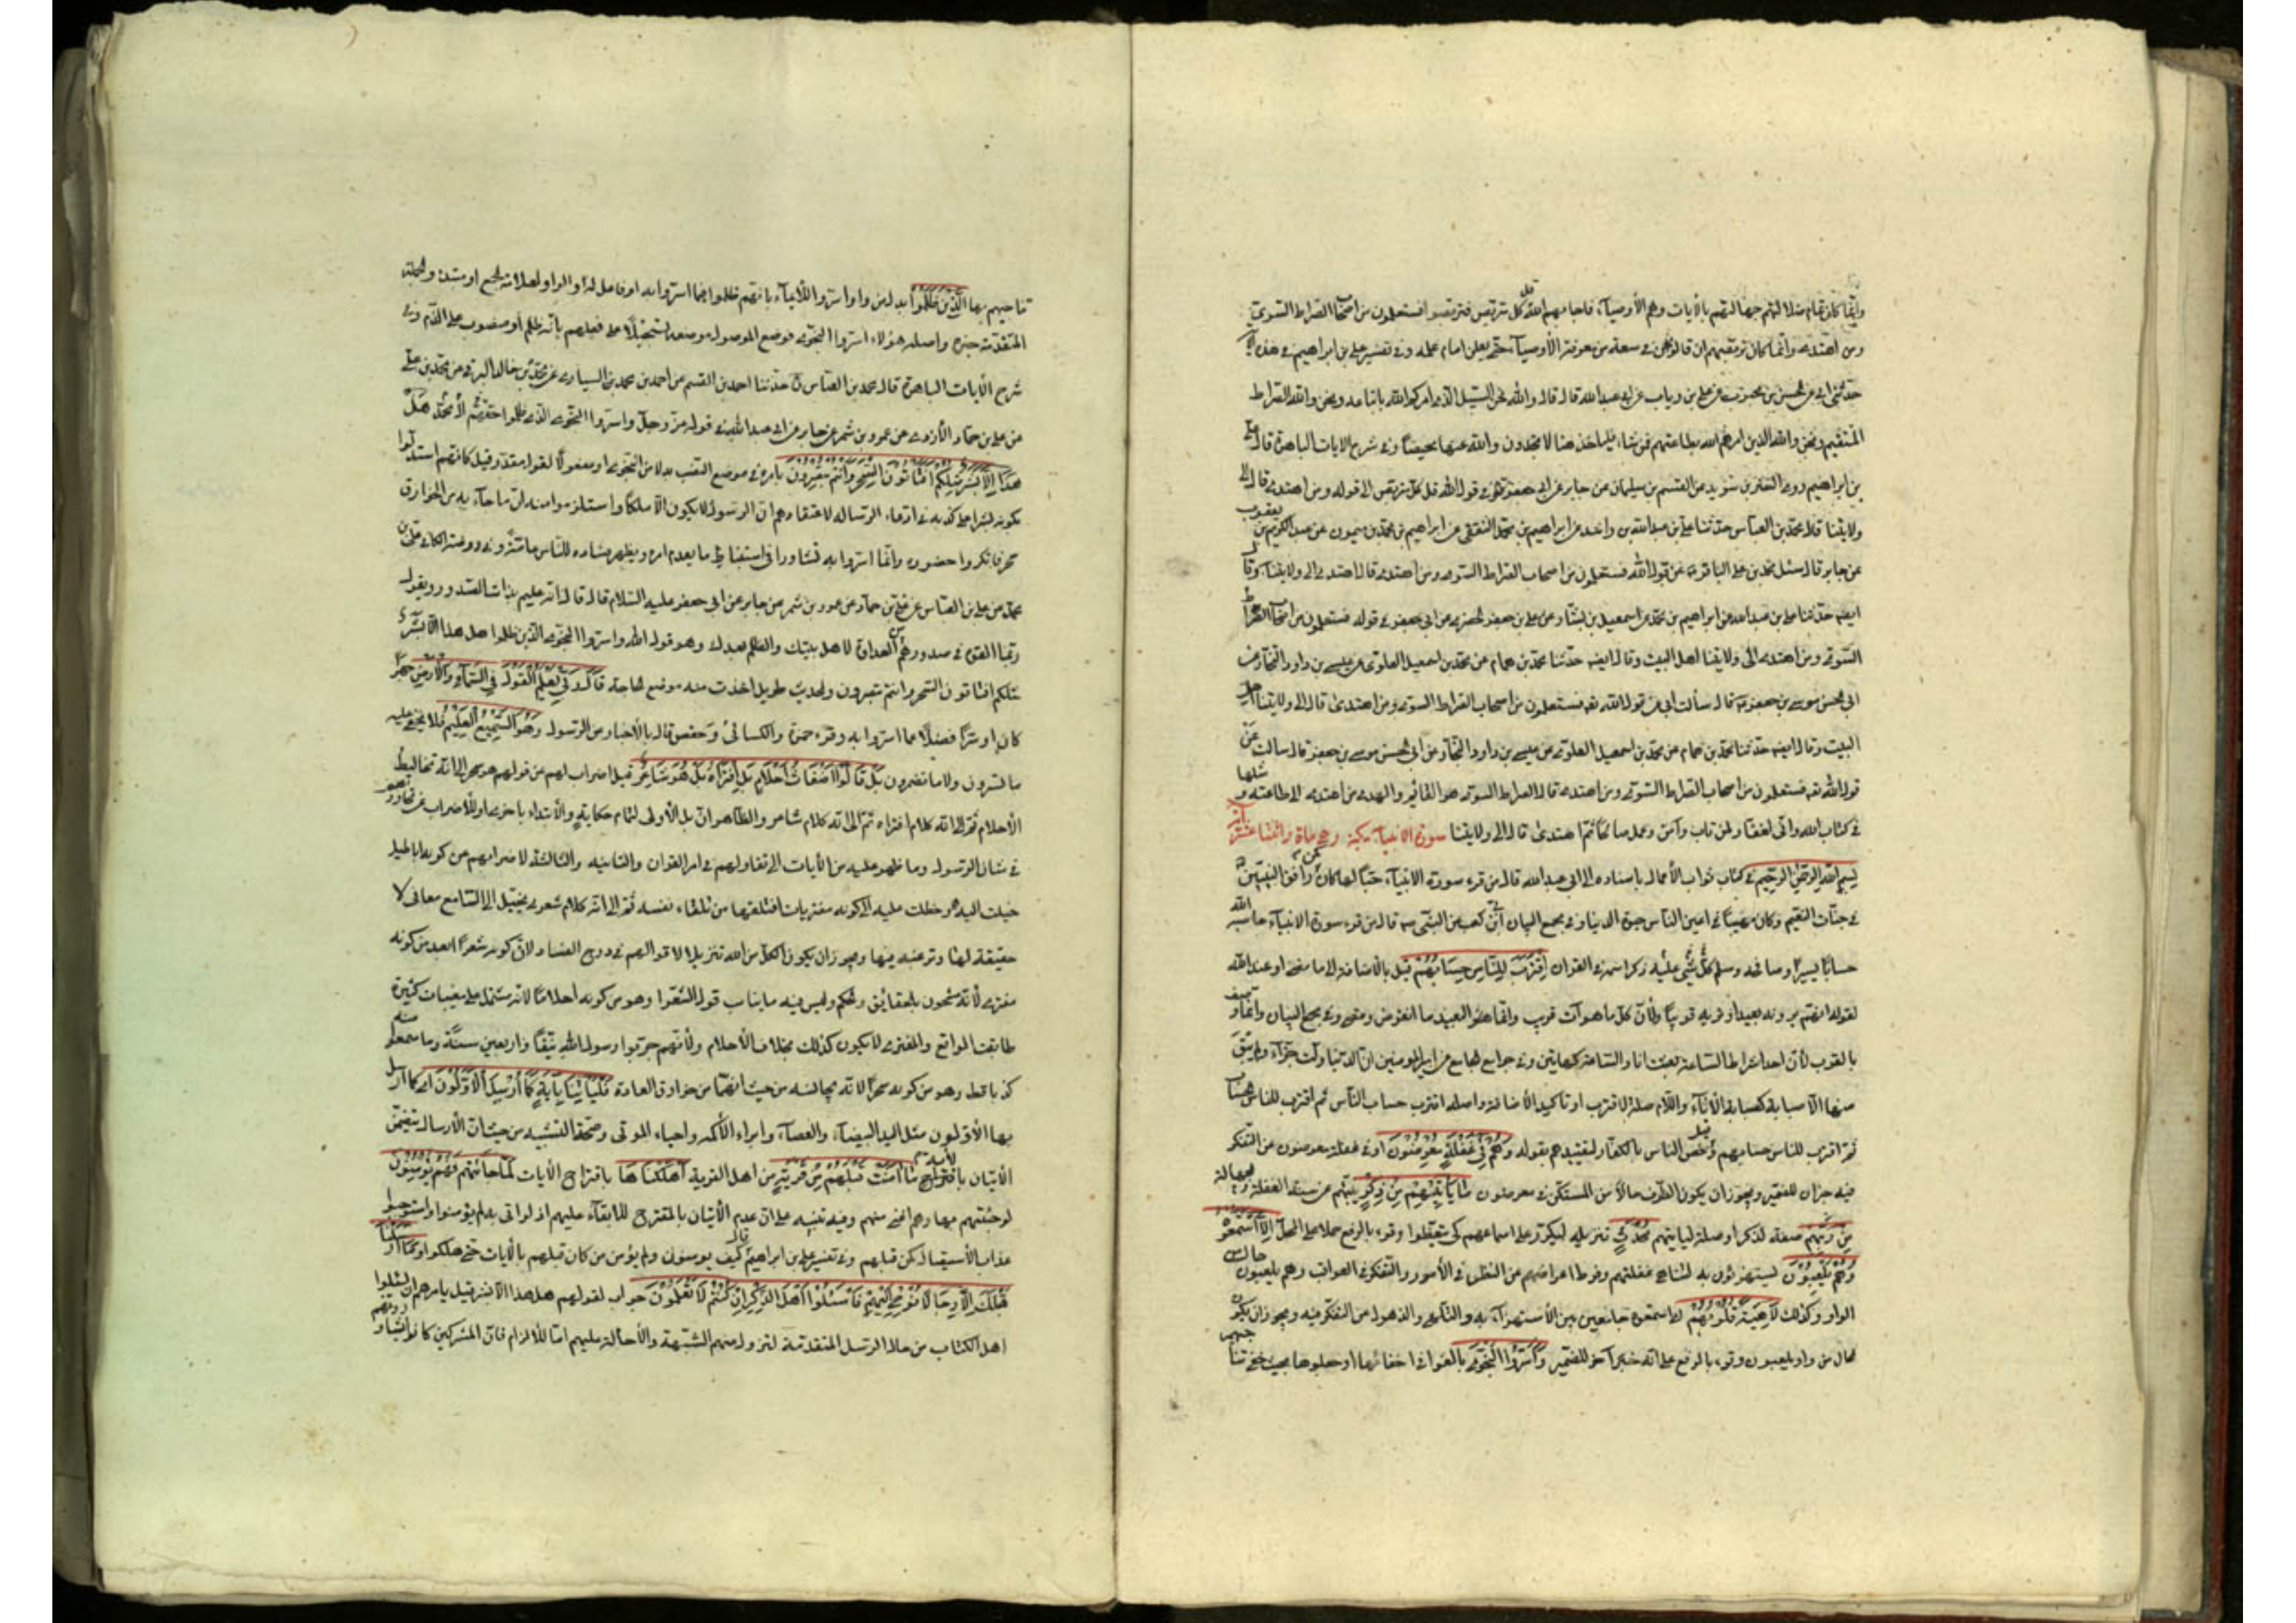 ومن اهتدى وانما كان توقيفهم ان قالوا نحن في سعة من معرفة الأوصياء حتى يعلن امام علمه وفي تفسير علي بن ابراهيم في هذه
حدثني ابي عن الحسن بن محبوب عن علي بن رياب عن ابي عبدالله قال قال والله نحن السبيل الذي امركم الله باتباعه ونحن والله الصراط
المستقيم ونحن والله الذين امرهم الله بطاعتهم فمن شاء فليأخذ هنا لا تجدون والله عنها محيصاً وفي شرح الايات الباهرة قال علي
بن ابراهيم روى النضر بن سويد عن القسم بن سليمان عن جابر عن ابي جعفر في قول الله قل كل متربص الى قوله ومن اهتدى قال الى
ولايتنا قال محمد بن العباس حدثنا علي بن عبدالله بن راشد عن ابراهيم بن محمد الثقفي عن ابراهيم بن محمد بن ميمون عن عبد الكريم بن يعقوب
عن جابر قال سئل محمد بن علي الباقر عن قول الله فستعلمون من اصحاب الصراط السوي ومن اهتدى قال اهتدى الى ولايتنا وقال
ايضا حدثنا علي بن عبدالله عن ابراهيم بن محمد عن اسمعيل بن بشار عن علي بن جعفر الحضرمي عن ابي جعفر في قوله فستعلمون من اصحاب الصراط
السوي ومن اهتدى الى ولايتنا اهل البيت وقال ايضا حدثنا محمد بن همام عن محمد بن اسمعيل العلوي عن عيسى بن داود النجار عن
ابي الحسن موسى بن جعفر قال سألت ابي عن قول الله فستعلمون من اصحاب الصراط السوي ومن اهتدى قال الى ولايتنا اهل
البيت وقال ايضا حدثنا محمد بن همام عن محمد بن اسمعيل العلوي عن عيسى بن داود النجار عن ابي الحسن موسى بن جعفر قال سالت عن
قول الله فستعلمون من اصحاب الصراط السوي ومن اهتدى قال الصراط السوي هو القائم والهدى من اهتدى الى طاعته و مثلها
في كتاب الله واني لغفار لمن تاب وآمن وعمل صالحا ثم اهتدى قال الى ولايتنا سورة الانبياء مكية وهي ماة واثنتا عشرة آية
بسم الله الرحمن الرحيم في كتاب ثواب الأعمال باسناده الى ابي عبدالله قال من قرء سورة الانبياء حباً لها كان كمن رافق النبيين
في جنات النعيم وكان مهيباً في اعين الناس حيوة الدنيا وفي مجمع البيان ابي بن كعب عن النبي ص قال من قرء سورة الانبياء حاسبه الله
حساباً يسيراً وصافحه وسلم عليه كل نبي ذكر اسمه في القران اقترب للناس حسابهم قيل بالاضافة الى ما مضى او عند الله
لقوله انهم يرونه بعيدا ونريه قريباً ولأن كل ما هو آت قريب وانما البعيد ما انقرض ومضى وفي مجمع البيان وانما وصف
بالقرب لأن احد اشراط الساعة بعث انا والساعة كهاتين وفي جوامع الجامع عن امير المومنين ان الدنيا ولت حذاء ولم يبق
منها الا صبابة كصبابة الاناء واللام صلة لاقترب او تاكيد الأضافة واصله اقترب حساب الناس ثم اقترب للناس الحساب
ثم اقترب للناس حسابهم وخص الناس بالكفار لتقييدهم بقوله وهم في غفلة معرضون اي في غفلة معرضون عن التفكر
فيه خبران للضمير ويجوز ان يكون الظرف حالاً من المستكن في معرضون ما يأتيهم من ذكر ينبههم عن سنة الغفلة والجهالة
من ربهم صفة لذكر او صلة ليأتيهم محدث تنزيله ليكرر على اسماعهم كي يتعظوا وقرء بالرفع حملا على المحل الا استمعوه
وهم يلعبون يستهزئون به لتناهي غفلتهم وفرط اعراضهم عن النظر في الأمور والتفكر في العواقب وهم يلعبون حال من
الواو وكذلك لاهية قلوبهم اي استمعوه جامعين بين الأستهزاء به والتلهي والذهول عن التفكر فيه ويجوز ان يكون
الحال من واو يلعبون وقرء بالرفع على انه خبر آخر للضمير واسروا النجوى بالغوا في اخفائها او جعلوها بحيث خفي تناجيهم
تناجيهم بها الذين ظلموا بدل من واو اسروا للأيماء بانهم ظلموا فيما اسروا به او فاعل له والواو لعلامة الجمع او مبتدأ والجملة
المتقدمة خبره واصله هؤلاء اسروا النجوى فوضع الموصول موضعه تسجيلاً على فعلهم بانه ظلم او منصوب على الذم وفي
شرح الأيات الباهرة قال محمد بن العباس حدثنا احمد بن القسم عن احمد بن محمد بن السياري عن محمد بن خالد البرقي عن محمد بن علي
عن علي بن حماد الأزدي عن عمرو بن شمر عن جابر عن ابي عبدالله في قوله عز وجل واسروا النجوى الذين ظلموا هل
هذا الا بشر مثلكم افتأتون السحر وانتم تبصرون بامره في موضع النصب بدلا من النجوى او مفعولاً لقول مقدر قيل كانهم استدلوا
بكونه بشرا على كذبه في ادعاء الرسالة لاعتقادهم ان الرسول لا يكون الا ملكاً واستلزموا منه ان ما جاء به من الخوارق
سحر فانكروا حضوره وانما اسروا به تشاورا في استنباط ما يهدم امره ويظهر فساده للناس عامة وفي روضة الكافي علي بن
محمد عن علي بن العباس عن علي بن حماد عن عمرو بن شمر عن جابر عن ابي جعفر عليه السلام قال قال انه عليم بذات الصدور ويقول
بما القوه في صدورهم من العداوة لاهل بيتك والظلم بعدك وهو قول الله واسروا النجوى الذين ظلموا هل هذا الا بشر
مثلكم افتاتون السحر وانتم تبصرون والحديث طويل اخذت منه موضع الحاجة قال ربي يعلم القول في السماء والأرض جهراً
كان او سراً فضلاً عما اسروا به وقرء حمزة والكسائي وحفص قال بالأخبار عن الرسول وهو السميع العليم فلا يخفى عليه
ما تسرون ولا ما تضمرون بل قالوا اضغاث احلام بل افتراه بل هو شاعر قيل اضراب لهم عن قولهم هو سحر الى انه تخاليط
الأحلام ثم الى انه كلام افتراه ثم الى انه كلام شاعر والظاهر ان بل الأولى لتمام حكاية والأبتداء باخرى او للأضراب عن تحاورهم
في شان الرسول وما ظهر عليه من الأيات الى تقاولهم في امر القران والثانية والثالثة لاضرابهم عن كونه اباطيل
خيلت اليه وخلطت عليه الى كونه مفتريات اختلقها من تلقاء نفسه ثم الى انه كلام شعري يخيل الى السامع معاني لا
حقيقة لها وترغبه فيها ويجوز ان يكون الكل من الله تنزيلا لاقوالهم في درج الفساد لان كونه شعرا ابعد من كونه
مفترى لأنه مشحون بالحقائق والحكم وليس فيه ما يناسب قول الشعراء وهو من كونه أحلاماً لانه مشتمل على مغيبات كثيرة
طابقت الواقع والمفترى لا يكون كذلك بخلاف الأحلام ولأنهم جربوا رسول الله نيفاً واربعين سنة وما سمعوا منه
كذبا قط وهو من كونه سحرا لانه يجانسه من حيث انهما من خوارق العادة فليأتنا بآية كما ارسل الاولون اي كما ارسل
بها الأولون مثل اليد البيضاء والعصا وابراء الأكمه واحياء الموتى وصحة التشبيه من حيث ان الأرسال يتضمن
الأتيان بالآية ما آمنت قبلهم من قرية من اهل القرية اهلكناها باقتراح الأيات لما جائتهم افهم يؤمنون
لو جئتهم بها وهم اعتى منهم وفيه تنبيه على ان عدم الأتيان بالمقترح للأبقاء عليهم اذ لو اتى به لم يؤمنوا واستوجبوا
عذاب الأستيصال كمن قبلهم وفي تفسير علي بن ابراهيم قال كيف يومنون ولم يؤمن من كان قبلهم بالأيات حتى هلكوا وما ارسلنا
قبلك الا رجالا نوحي اليهم فاسئلوا اهل الذكر ان كنتم لا تعلمون جواب لقولهم هل هذا الا بشر قيل يامرهم ان يسئلوا
اهل الكتاب عن حال الرسل المتقدمة لتزول عنهم الشبهة والأحالة عليهم اما للألزام فان المشركين كانوا يشاورونهم